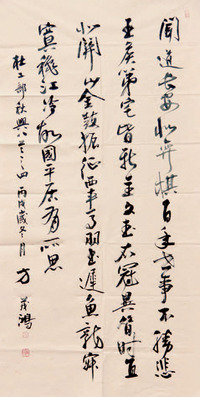 聞道長安似弈棋百年世事不勝悲
王侯第宅皆新主文武衣冠異昔時直
北關山金鼓振征西車馬羽書遲魚龍寂
寞秋江冷故國平居有所思
杜工部秋興八首之四 丙戌歲冬月 方茂鴻